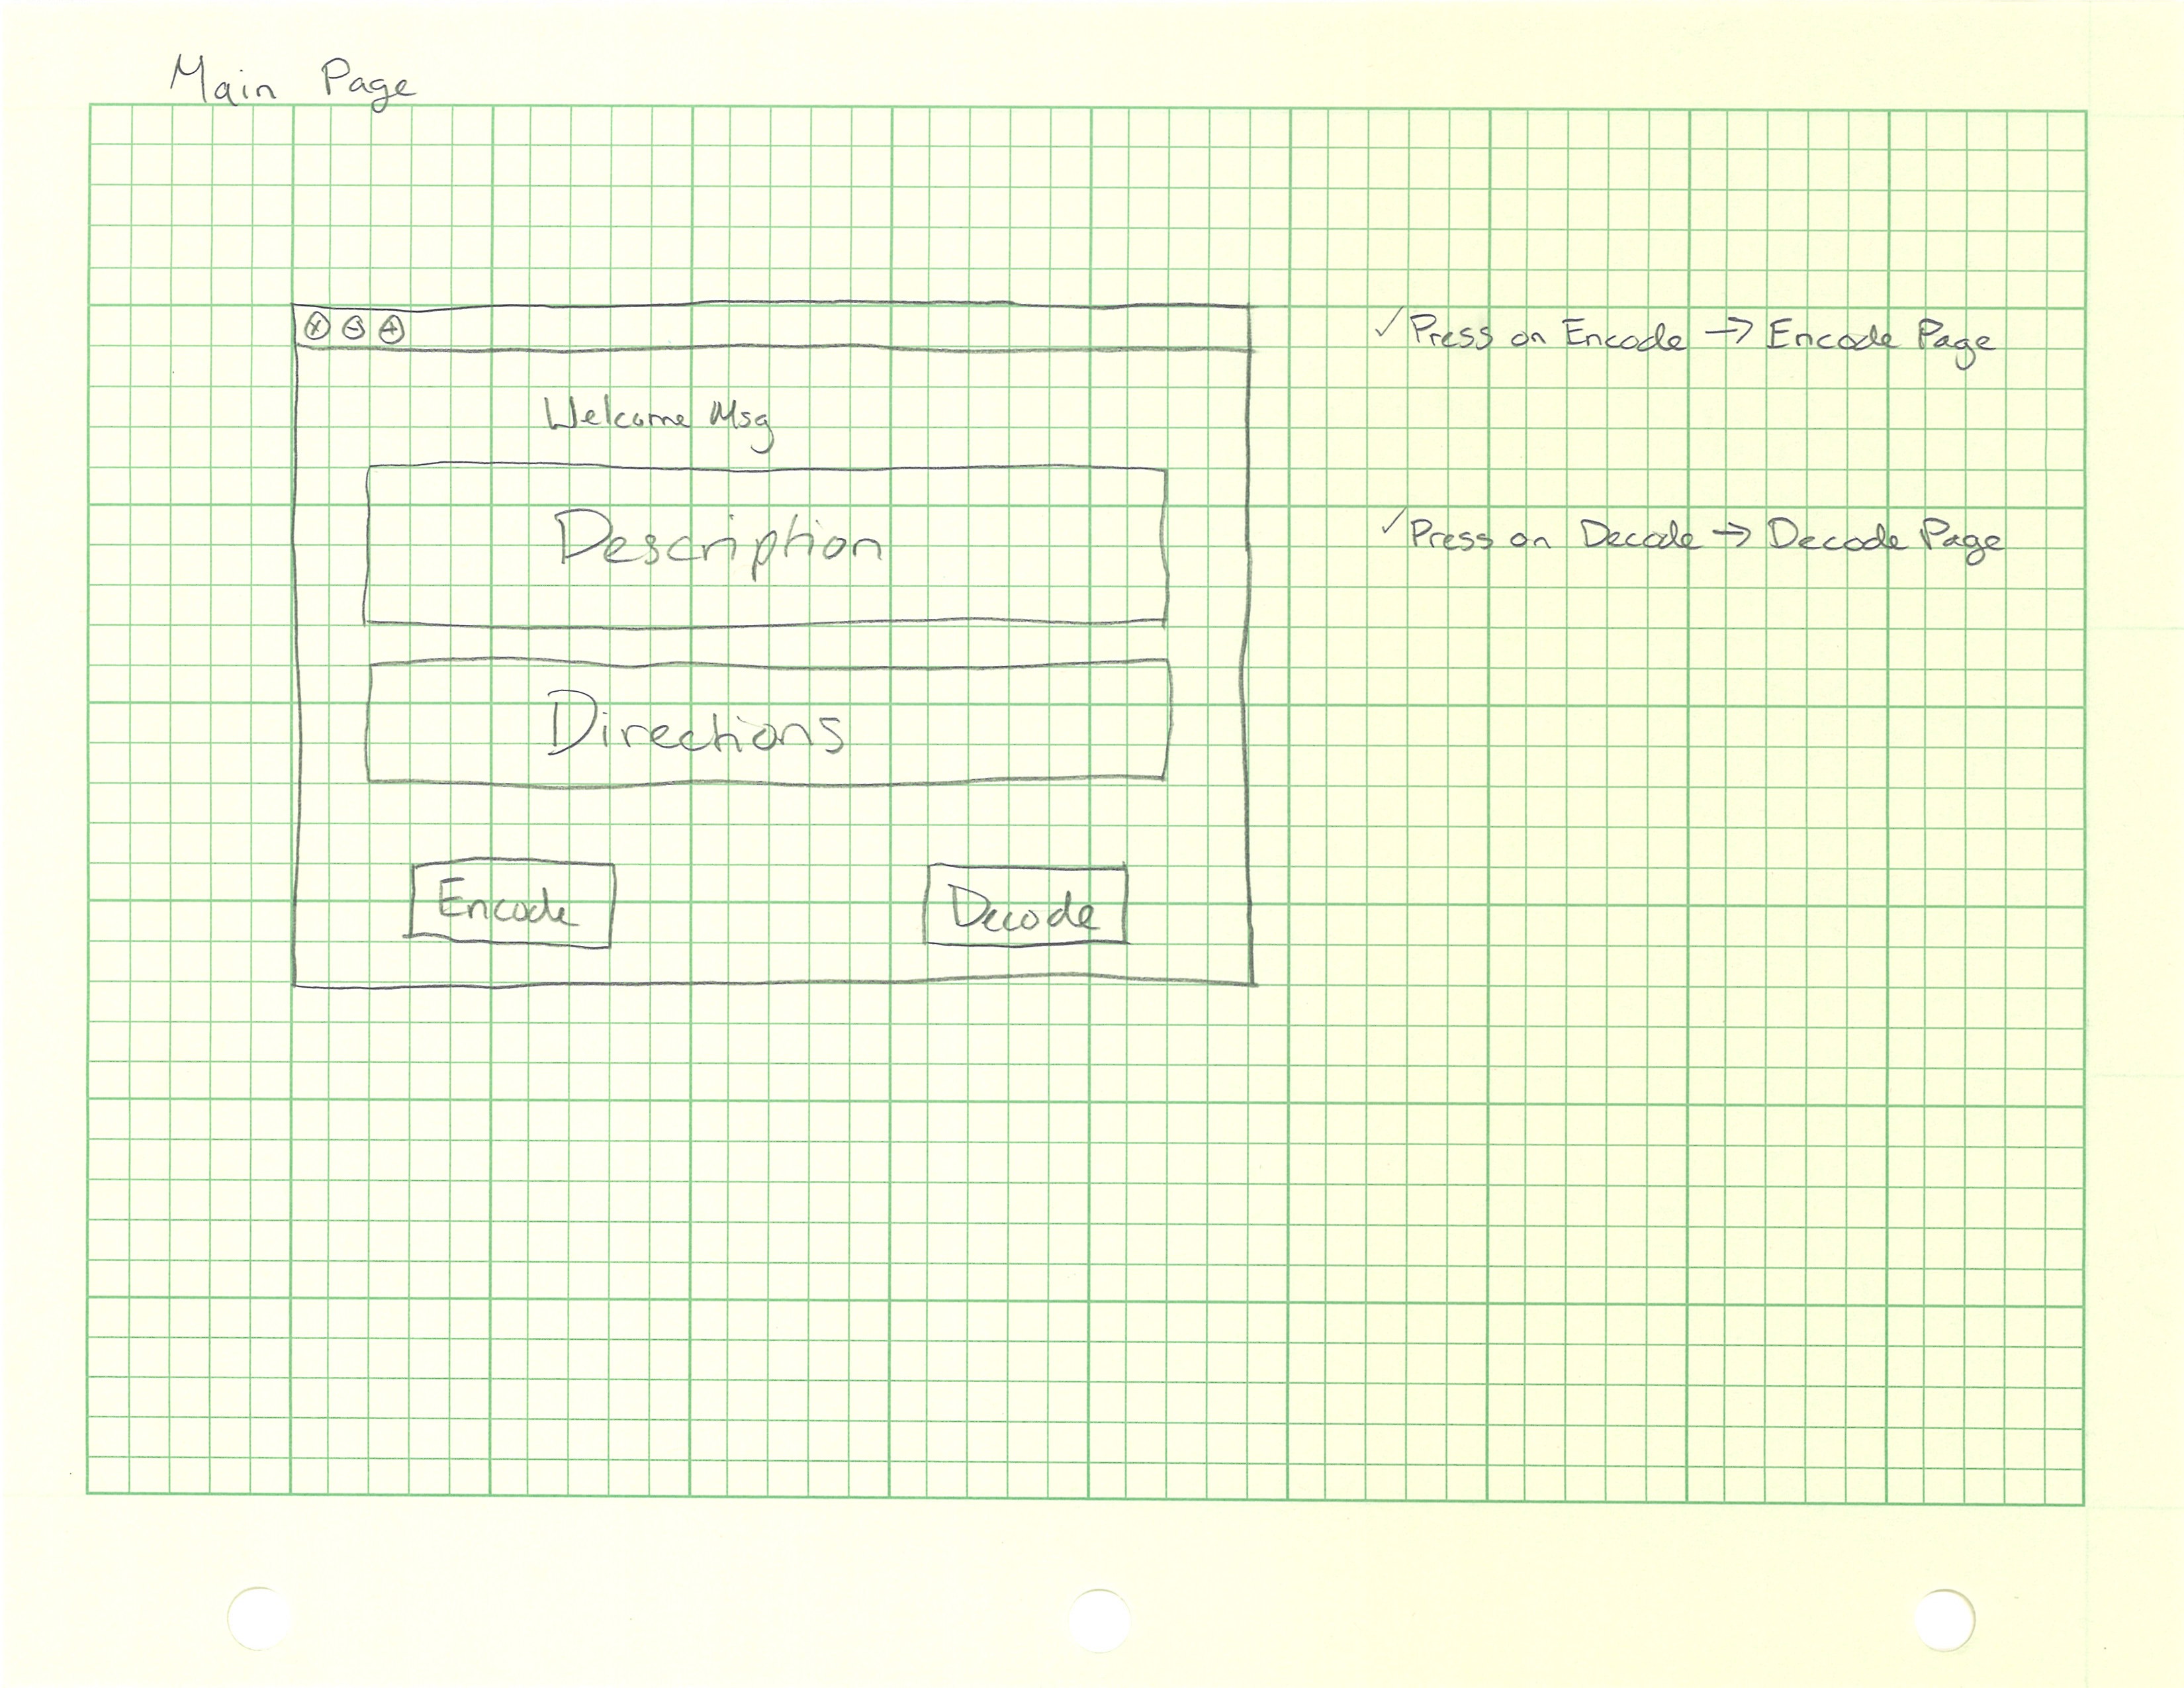 Main Page
Welcome Msg
Description
Directions
Encode
Decode
✓ Press on Encode → Encode Page
✓ Press on Decode → Decode Page